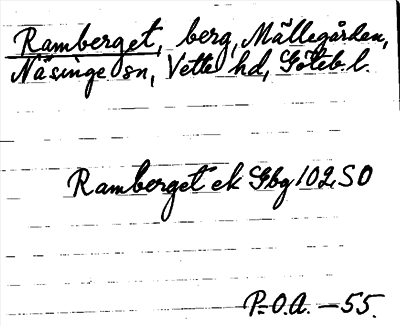 Ramberget, berg, Mällegården,
Näsinge sn, Vette hd, Göteb. l.
Ramberget ek Gbg 102, SO
P.-O.A. -55.